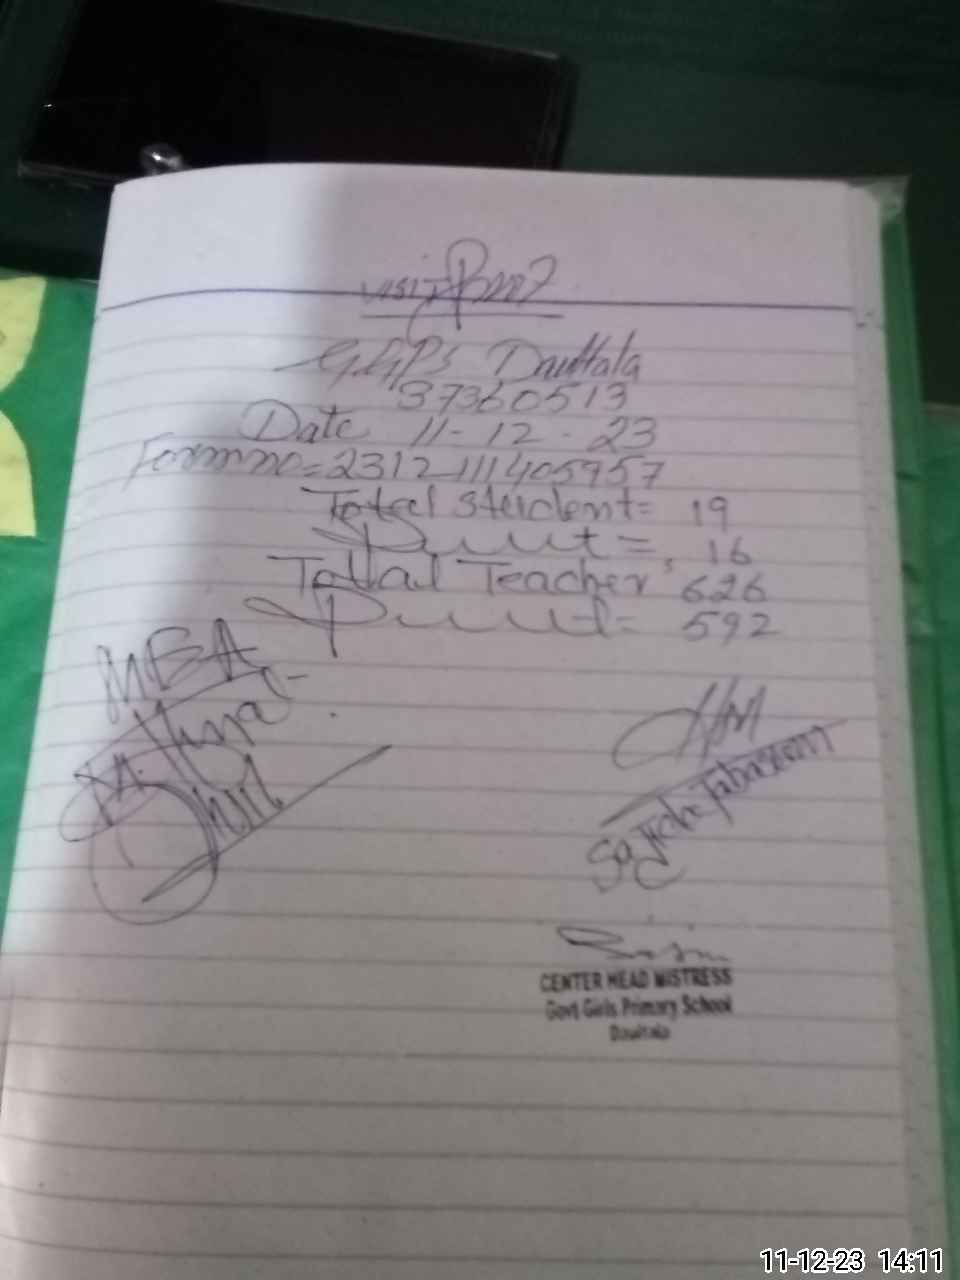 visit Proof
G.G.P.S Daultala
37360513
Date 11-12-23
Form no = 2312111405957
Total Student = 19
Present = 16
Total Teacher 626
Present = 592
MEA
HM
Sajida Tabassum
CENTER HEAD MISTRESS
Govt Girls Primary School
Daultala
11-12-23 14:11